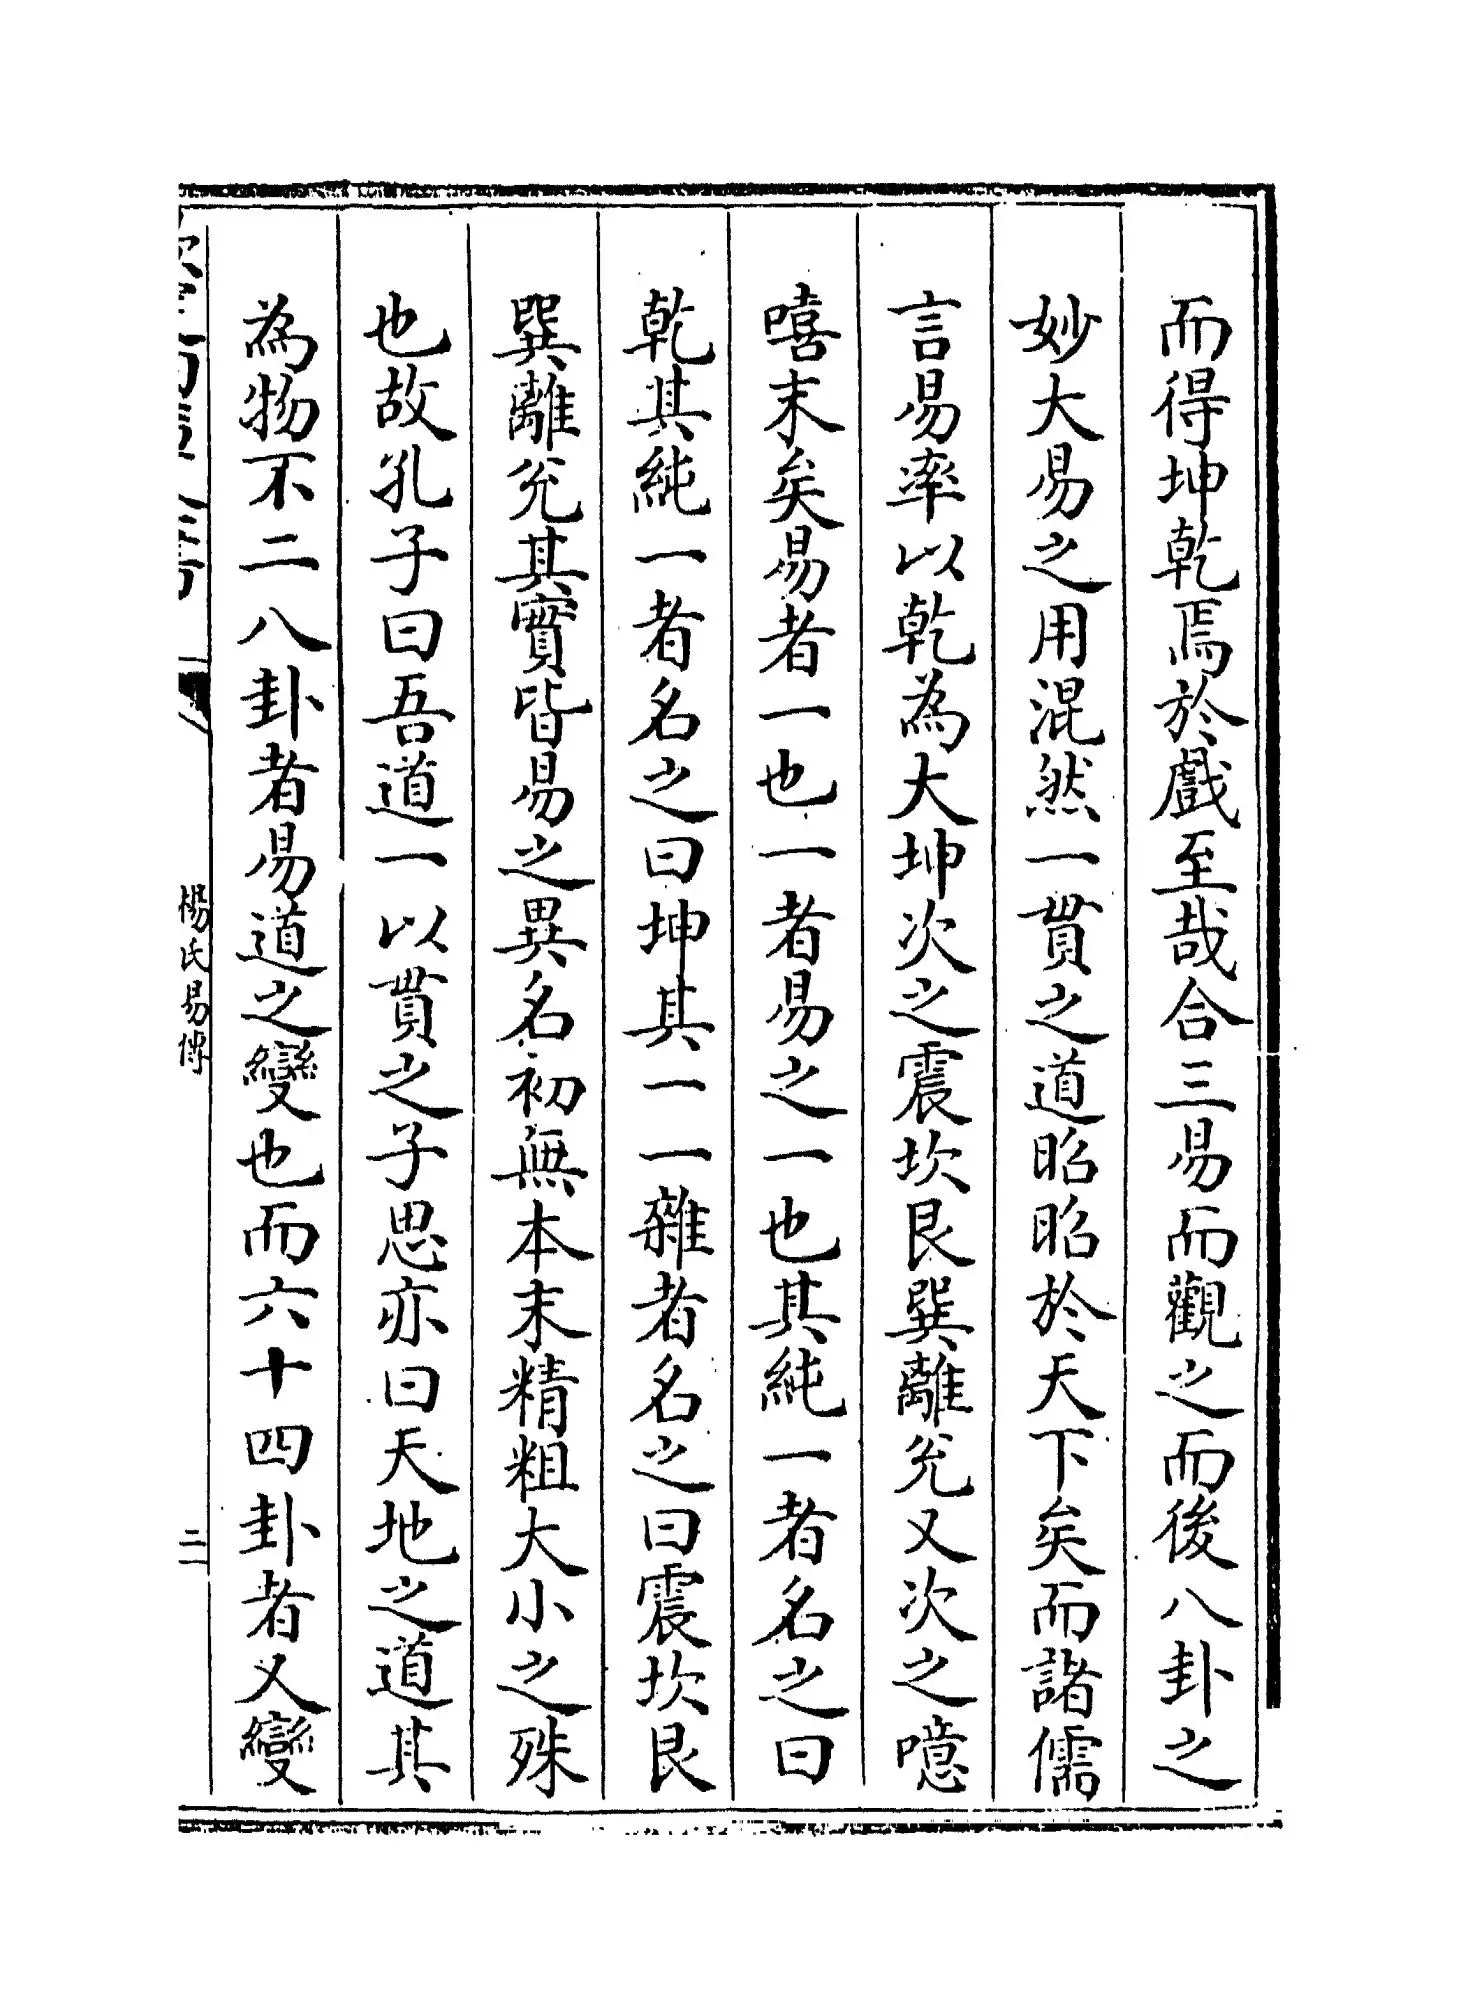 而得坤乾焉於戲至哉合三易而觀之而後八卦之
妙大易之用混然一貫之道昭昭於天下矣而諸儒
言易率以乾為大坤次之震坎艮巽離兊又次之噫
嘻末矣易者一也一者易之一也其純一者名之曰
乾其純一者名之曰坤其一一雜者名之曰震坎艮
巽離兊其實皆易之異名初無本末精粗大小之殊
也故孔子曰吾道一以貫之子思亦曰天地之道其
為物不二八卦者易道之變也而六十四卦者又變
楊氏易傳
二